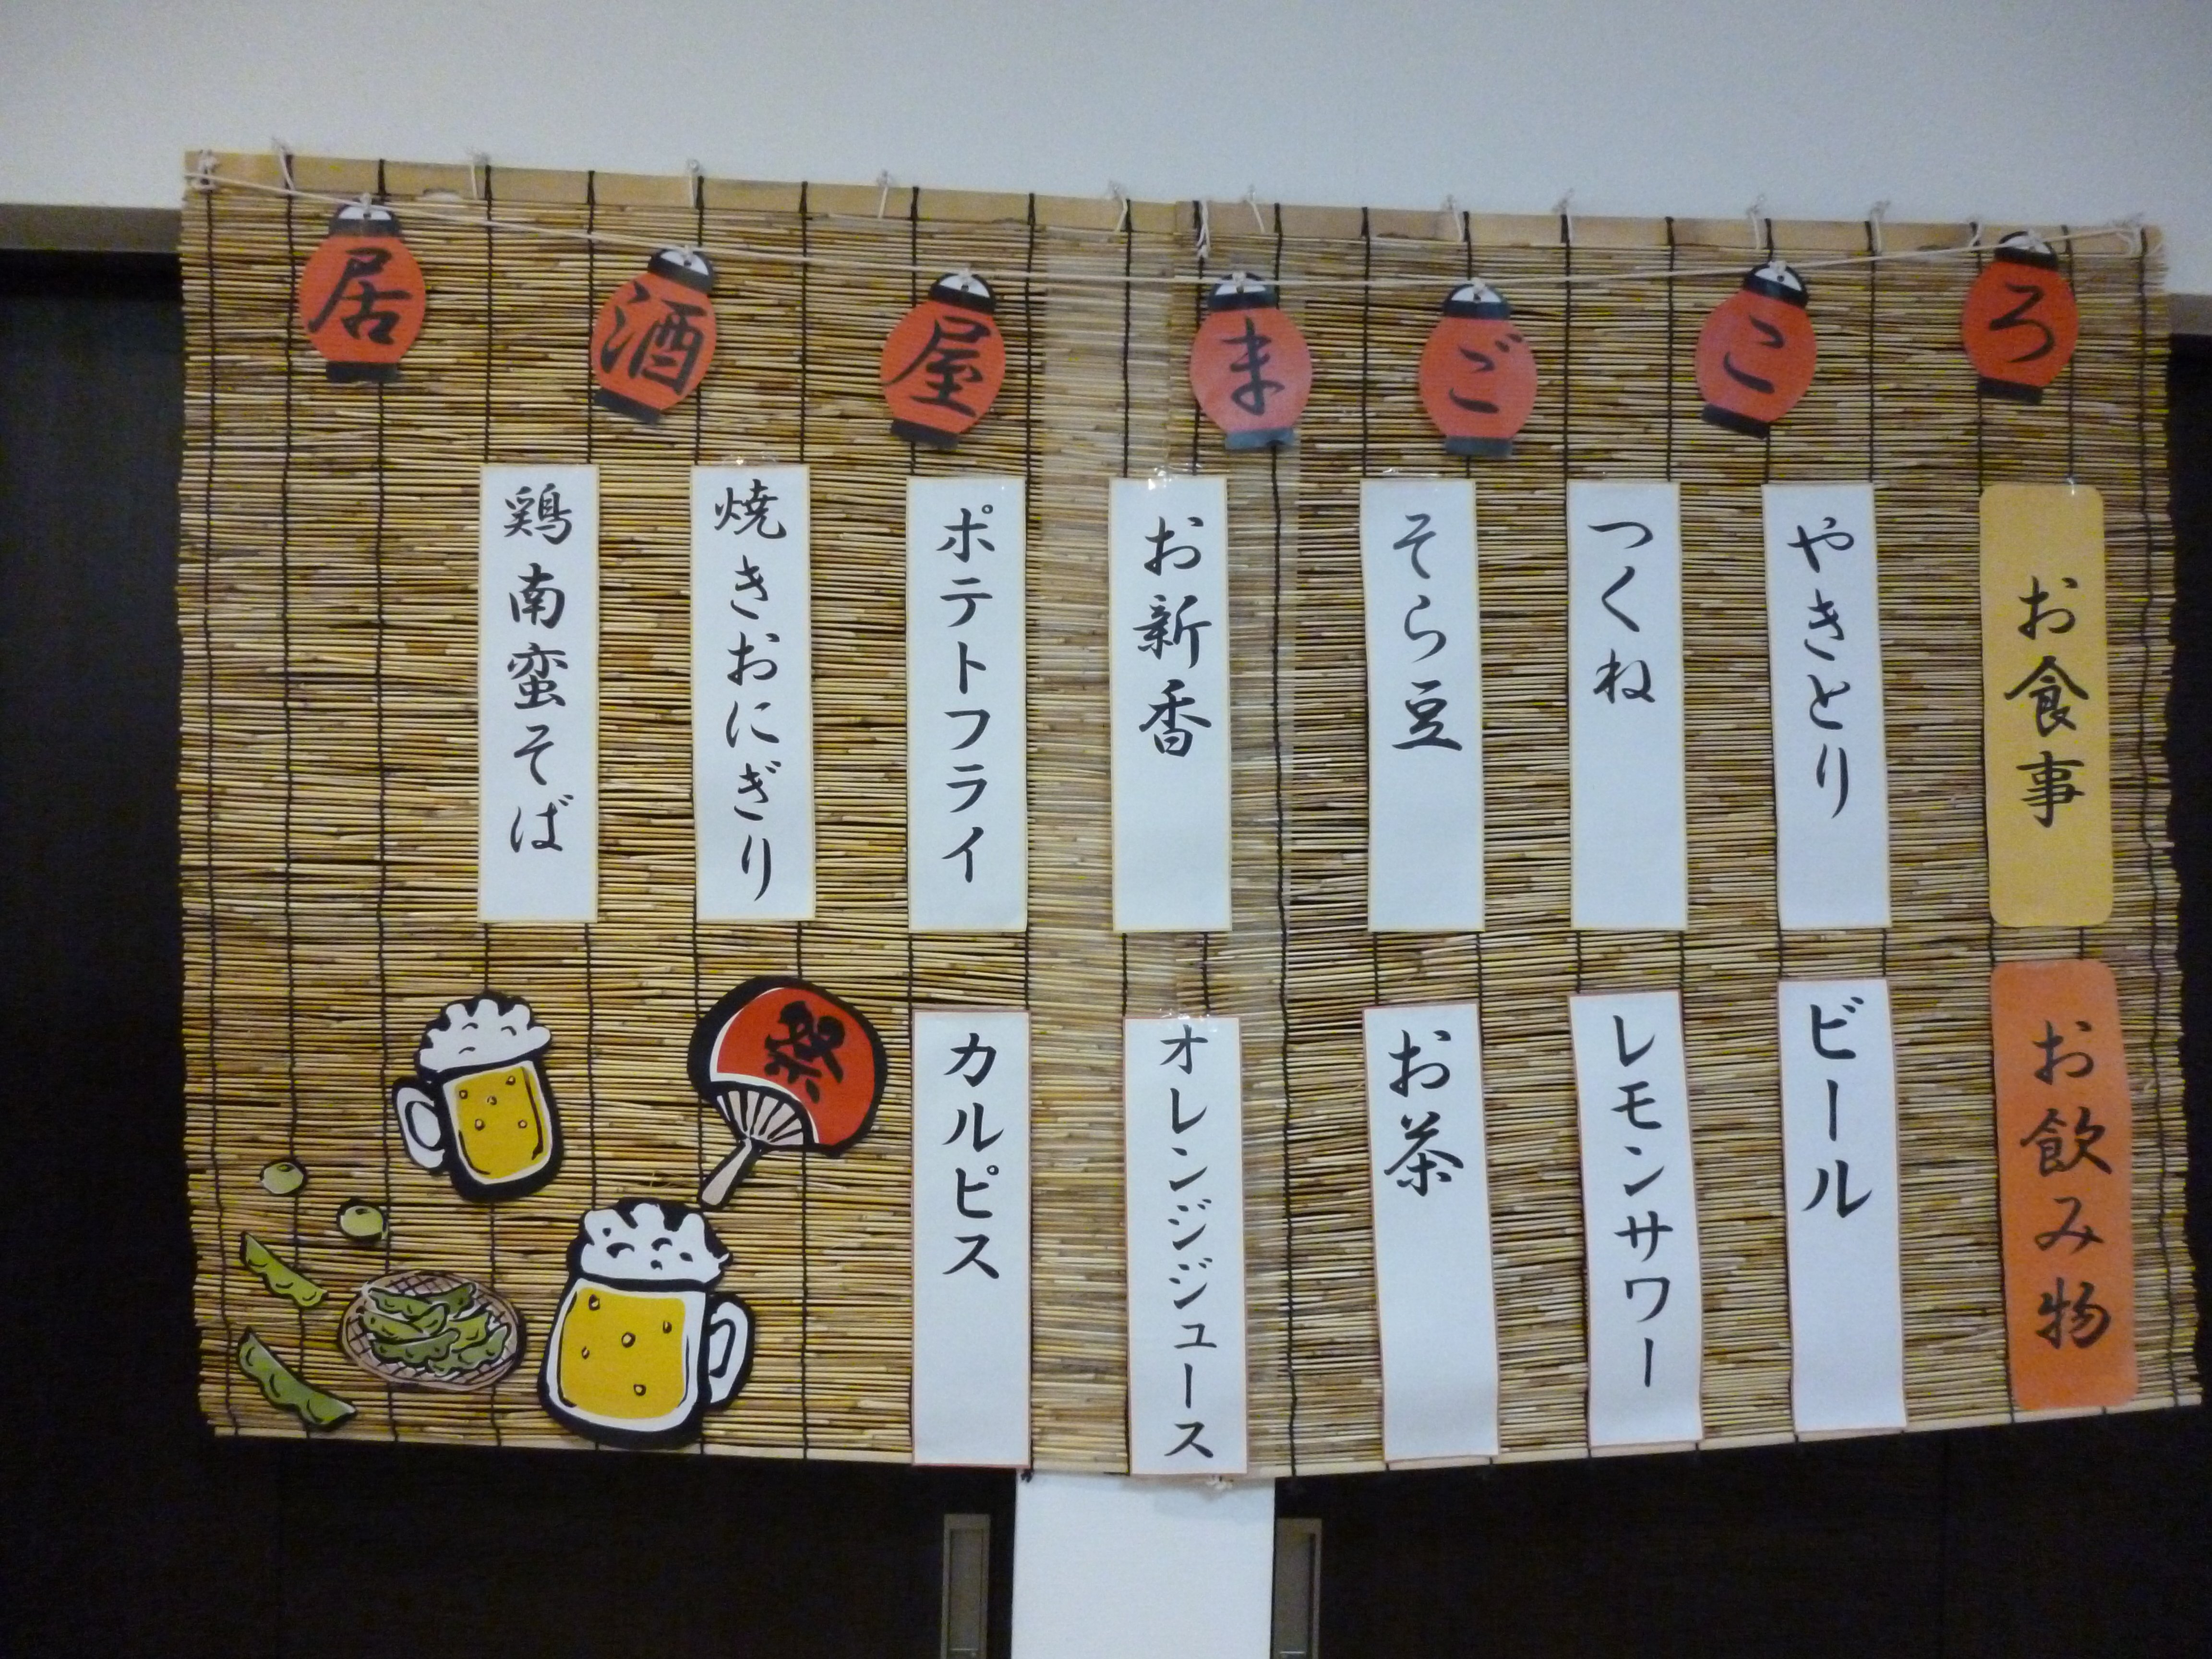 居酒屋まごころ
お食事
やきとり
つくね
そら豆
お新香
ポテトフライ
焼きおにぎり
鶏南蛮そば
お飲み物
ビール
レモンサワー
お茶
オレンジジュース
カルピス
祭